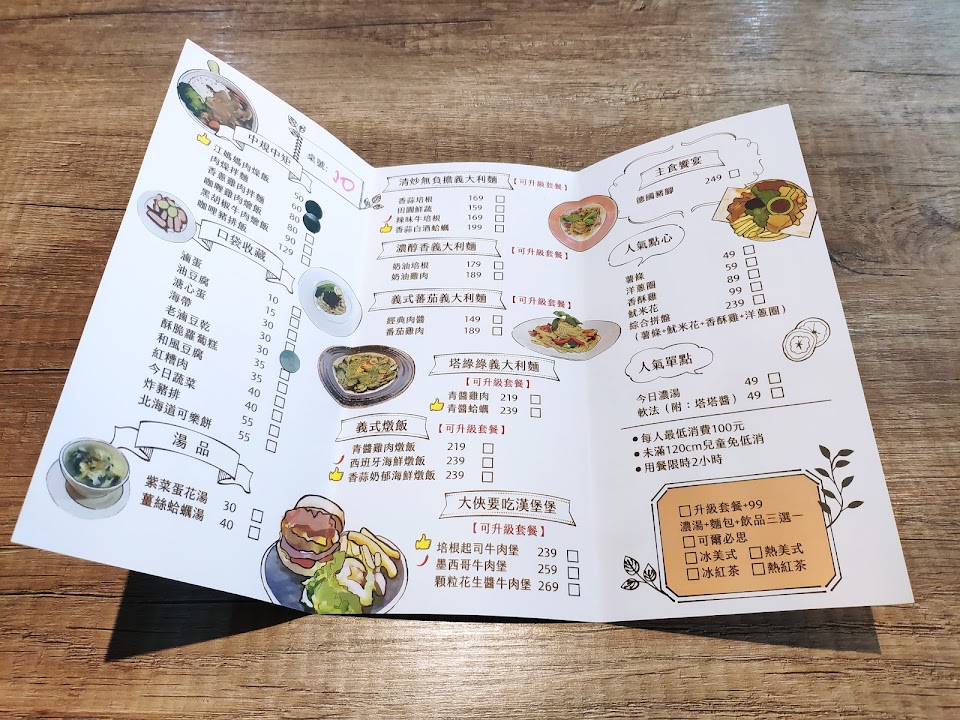 中規中矩
桌號: 10
江媽媽肉燥飯 50
肉燥拌麵 60
香蔥雞肉拌麵 80
咖哩雞肉燴飯 80
黑胡椒牛肉燴飯 90
咖哩豬排飯 129
口袋收藏
滷蛋 10
油豆腐 15
溏心蛋 30
海帶 30
老滷豆乾 30
酥脆蘿蔔糕 35
和風豆腐 35
紅糟肉 40
今日蔬菜 40
炸豬排 55
北海道可樂餅 55
湯品
紫菜蛋花湯 30
薑絲蛤蠣湯 40
清炒無負擔義大利麵【可升級套餐】
香蒜培根 169
田園鮮蔬 159
辣味牛培根 169
香蒜白酒蛤蠣 199
濃醇香義大利麵【可升級套餐】
奶油培根 179
奶油雞肉 189
義式蕃茄義大利麵【可升級套餐】
經典肉醬 149
番茄雞肉 189
塔綠綠義大利麵
【可升級套餐】
青醬雞肉 219
青醬蛤蠣 239
義式燉飯【可升級套餐】
青醬雞肉燉飯 219
西班牙海鮮燉飯 239
香蒜奶郁海鮮燉飯 239
大俠要吃漢堡堡
【可升級套餐】
培根起司牛肉堡 239
墨西哥牛肉堡 259
顆粒花生醬牛肉堡 269
主食饗宴
德國豬腳 249
人氣點心
薯條 49
洋蔥圈 59
香酥雞 89
魷米花 99
綜合拼盤 239
(薯條+魷米花+香酥雞+洋蔥圈)
人氣單點
今日濃湯 49
軟法（附：塔塔醬） 49
●每人最低消費100元
●未滿120cm兒童免低消
●用餐限時2小時
□升級套餐+99
濃湯+麵包+飲品三選一
□可爾必思
□冰美式 □熱美式
□冰紅茶 □熱紅茶